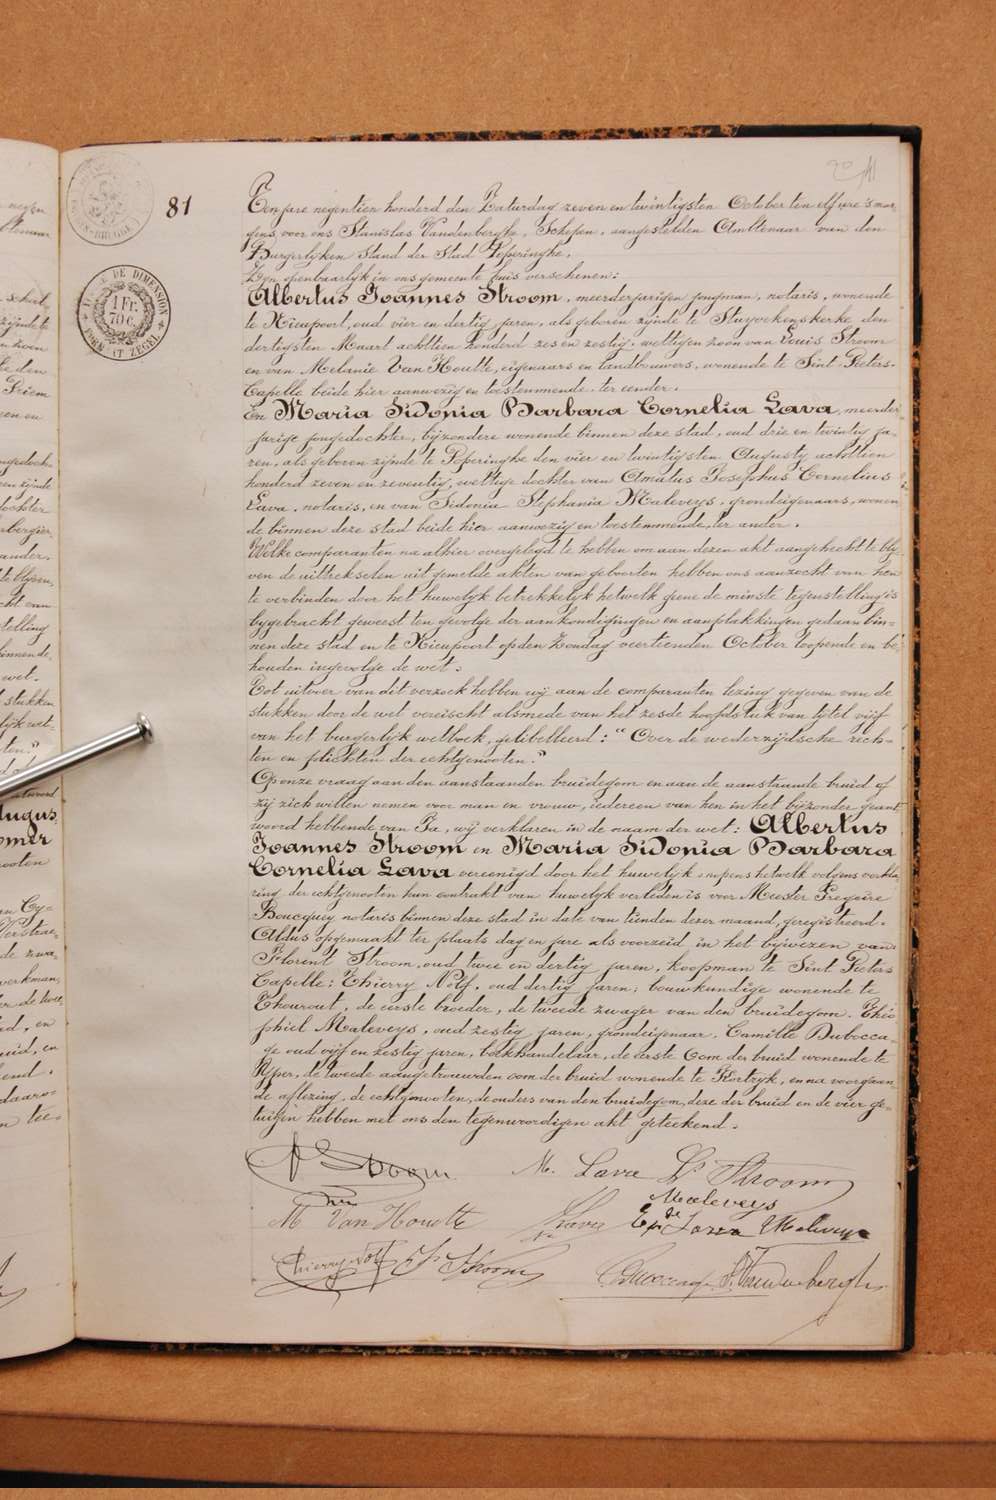 81
TIMBRE DE DIMENSION
1 Fr. 70 c.
FORMAAT ZEGEL
Ten jare negentien honderd den Zaturdag zeven en twintigsten October ten elf ure 's mor-
gens, voor ons Stanislas Vandenberghe, Schepen, aangestelden Ambtenaar van den
Burgerlyken Stand der Stad Poperinghe,
Zyn openbaarlyk in ons gemeente huis verschenen:
Albertus Joannes Stroom, meerderjarigen jongman, notaris, wonende
te Nieupoort, oud vier en dertig jaren, als geboren zijnde te Stuyvekenskerke den
dertigsten Maart achttien honderd zes en zestig, wettigen zoon van Louis Stroom
en van Melanie Van Houtte, eigenaars en landbouwers, wonende te Sint Pieters-
Capelle beide hier aanwezig en toestemmende, ter eender.
En Maria Sidonia Barbara Cornelia Lava, meerder-
jarige jongedochter, bijzondere wonende binnen deze stad, oud drie en twintig ja-
ren, als geboren zijnde te Poperinghe den vier en twintigsten Augusty achttien
honderd zeven en zeventig, wettige dochter van Amatus Josephus Cornelius
Lava, notaris, en van Sidonia Stephania Maleveys, grondeigenaars, wonen-
de binnen deze stad beide hier aanwezig en toestemmende, ter ander.
Welke comparanten na alhier overgelegd te hebben om aan dezen akt aangehecht te bly-
ven de uittrekselen uit gemelde akten van geboorten hebben ons aanzocht van hen
te verbinden door het huwelyk betrekkelyk hetwelk geene de minste tegenstelling is
bygebracht geweest ten gevolge der aankondigingen en aanplakkingen gedaan bin-
nen deze stad en te Nieupoort op den Zondag veertienden October loopende en be-
houden ingevolge de wet.
Tot uitvoer van dit verzoek hebben wij aan de comparanten lezing gegeven van de
stukken door de wet vereischt alsmede van het zesde hoofdstuk van tytel vijf
van het burgerlyk wetboek, getibelleerd: "Over de wederzydsche rech-
ten en plichten der echtgenooten."
Op onze vraag aan den aanstaanden bruidegom en aan de aanstaande bruid of
zij zich willen nemen voor man en vrouw, iedereen van hen in het bijzonder geant-
woord hebbende van Ja, wij verklaren in de naam der wet: Albertus
Joannes Stroom en Maria Sidonia Barbara
Cornelia Lava vereenigd door het huwelyk, nopens hetwelk volgens verkla-
ring der echtgenooten hun contrakt van huwelyk verleden is voor Meester Gregoire
Boucquey notaris binnen deze stad in date van tienden dezer maand, geregistreerd.
Aldus opgemaakt ter plaats dag en jare als voorzeid in het bijwezen van
Florent Stroom, oud twee en dertig jaren, koopman te Sint Pieters
Capelle; Thierry Nolf, oud dertig jaren, bouwkundige wonende te
Thourout, de eerste broeder, de tweede zwager van den bruidegom, Théo-
phiel Maleveys, oud zestig jaren, grondeigenaar, Camille Dubocca-
ge oud vijf en zestig jaren, boekhandelaar, de eerste Oom der bruid wonende te
Yper, de tweede aangetrouwden oom der bruid wonende te Kortryk, en na voorgaan-
de aflezing, de echtgenooten, de ouders van den bruidegom, deze der bruid en de vier ge-
tuigen hebben met ons den tegenwoordigen akt geteekend.
A Stroom
M. Lava
Ls Stroom
M Van Houtte
Lava
Maleveys
Ep de Lava
Maleveys
Thierry Nolf
Fl Stroom
Duboccage
S. Vandenberghe